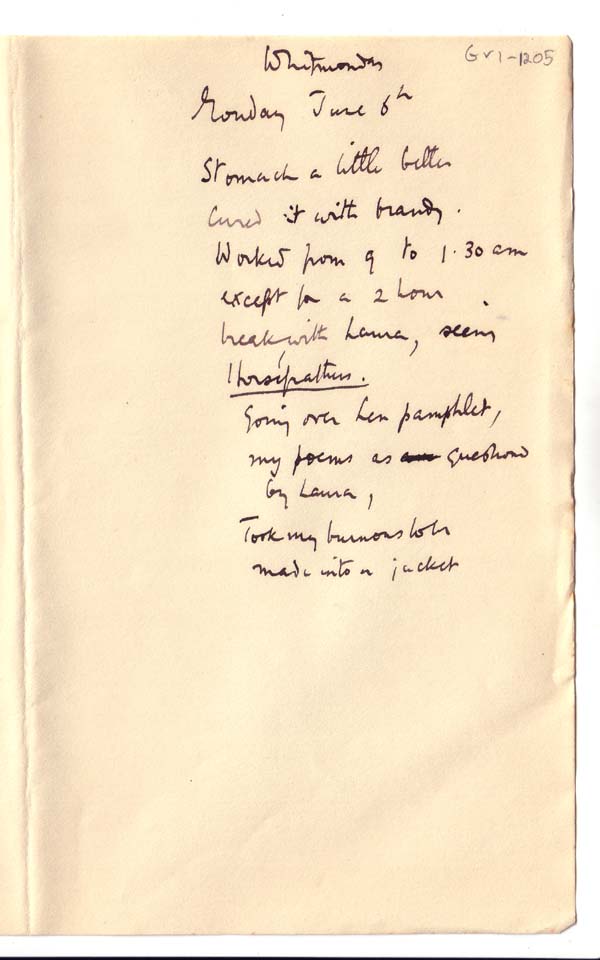 GV1-1205
Whitmonday
Monday June 6th
Stomach a little better
Cured it with brandy.
Worked from 9 to 1.30 am
except for a 2 hour
break, with Laura, seeing
Horsefeathers.
Going over her pamphlet,
my poems as questioned
by Laura,
Took my burnous to be
made into a jacket